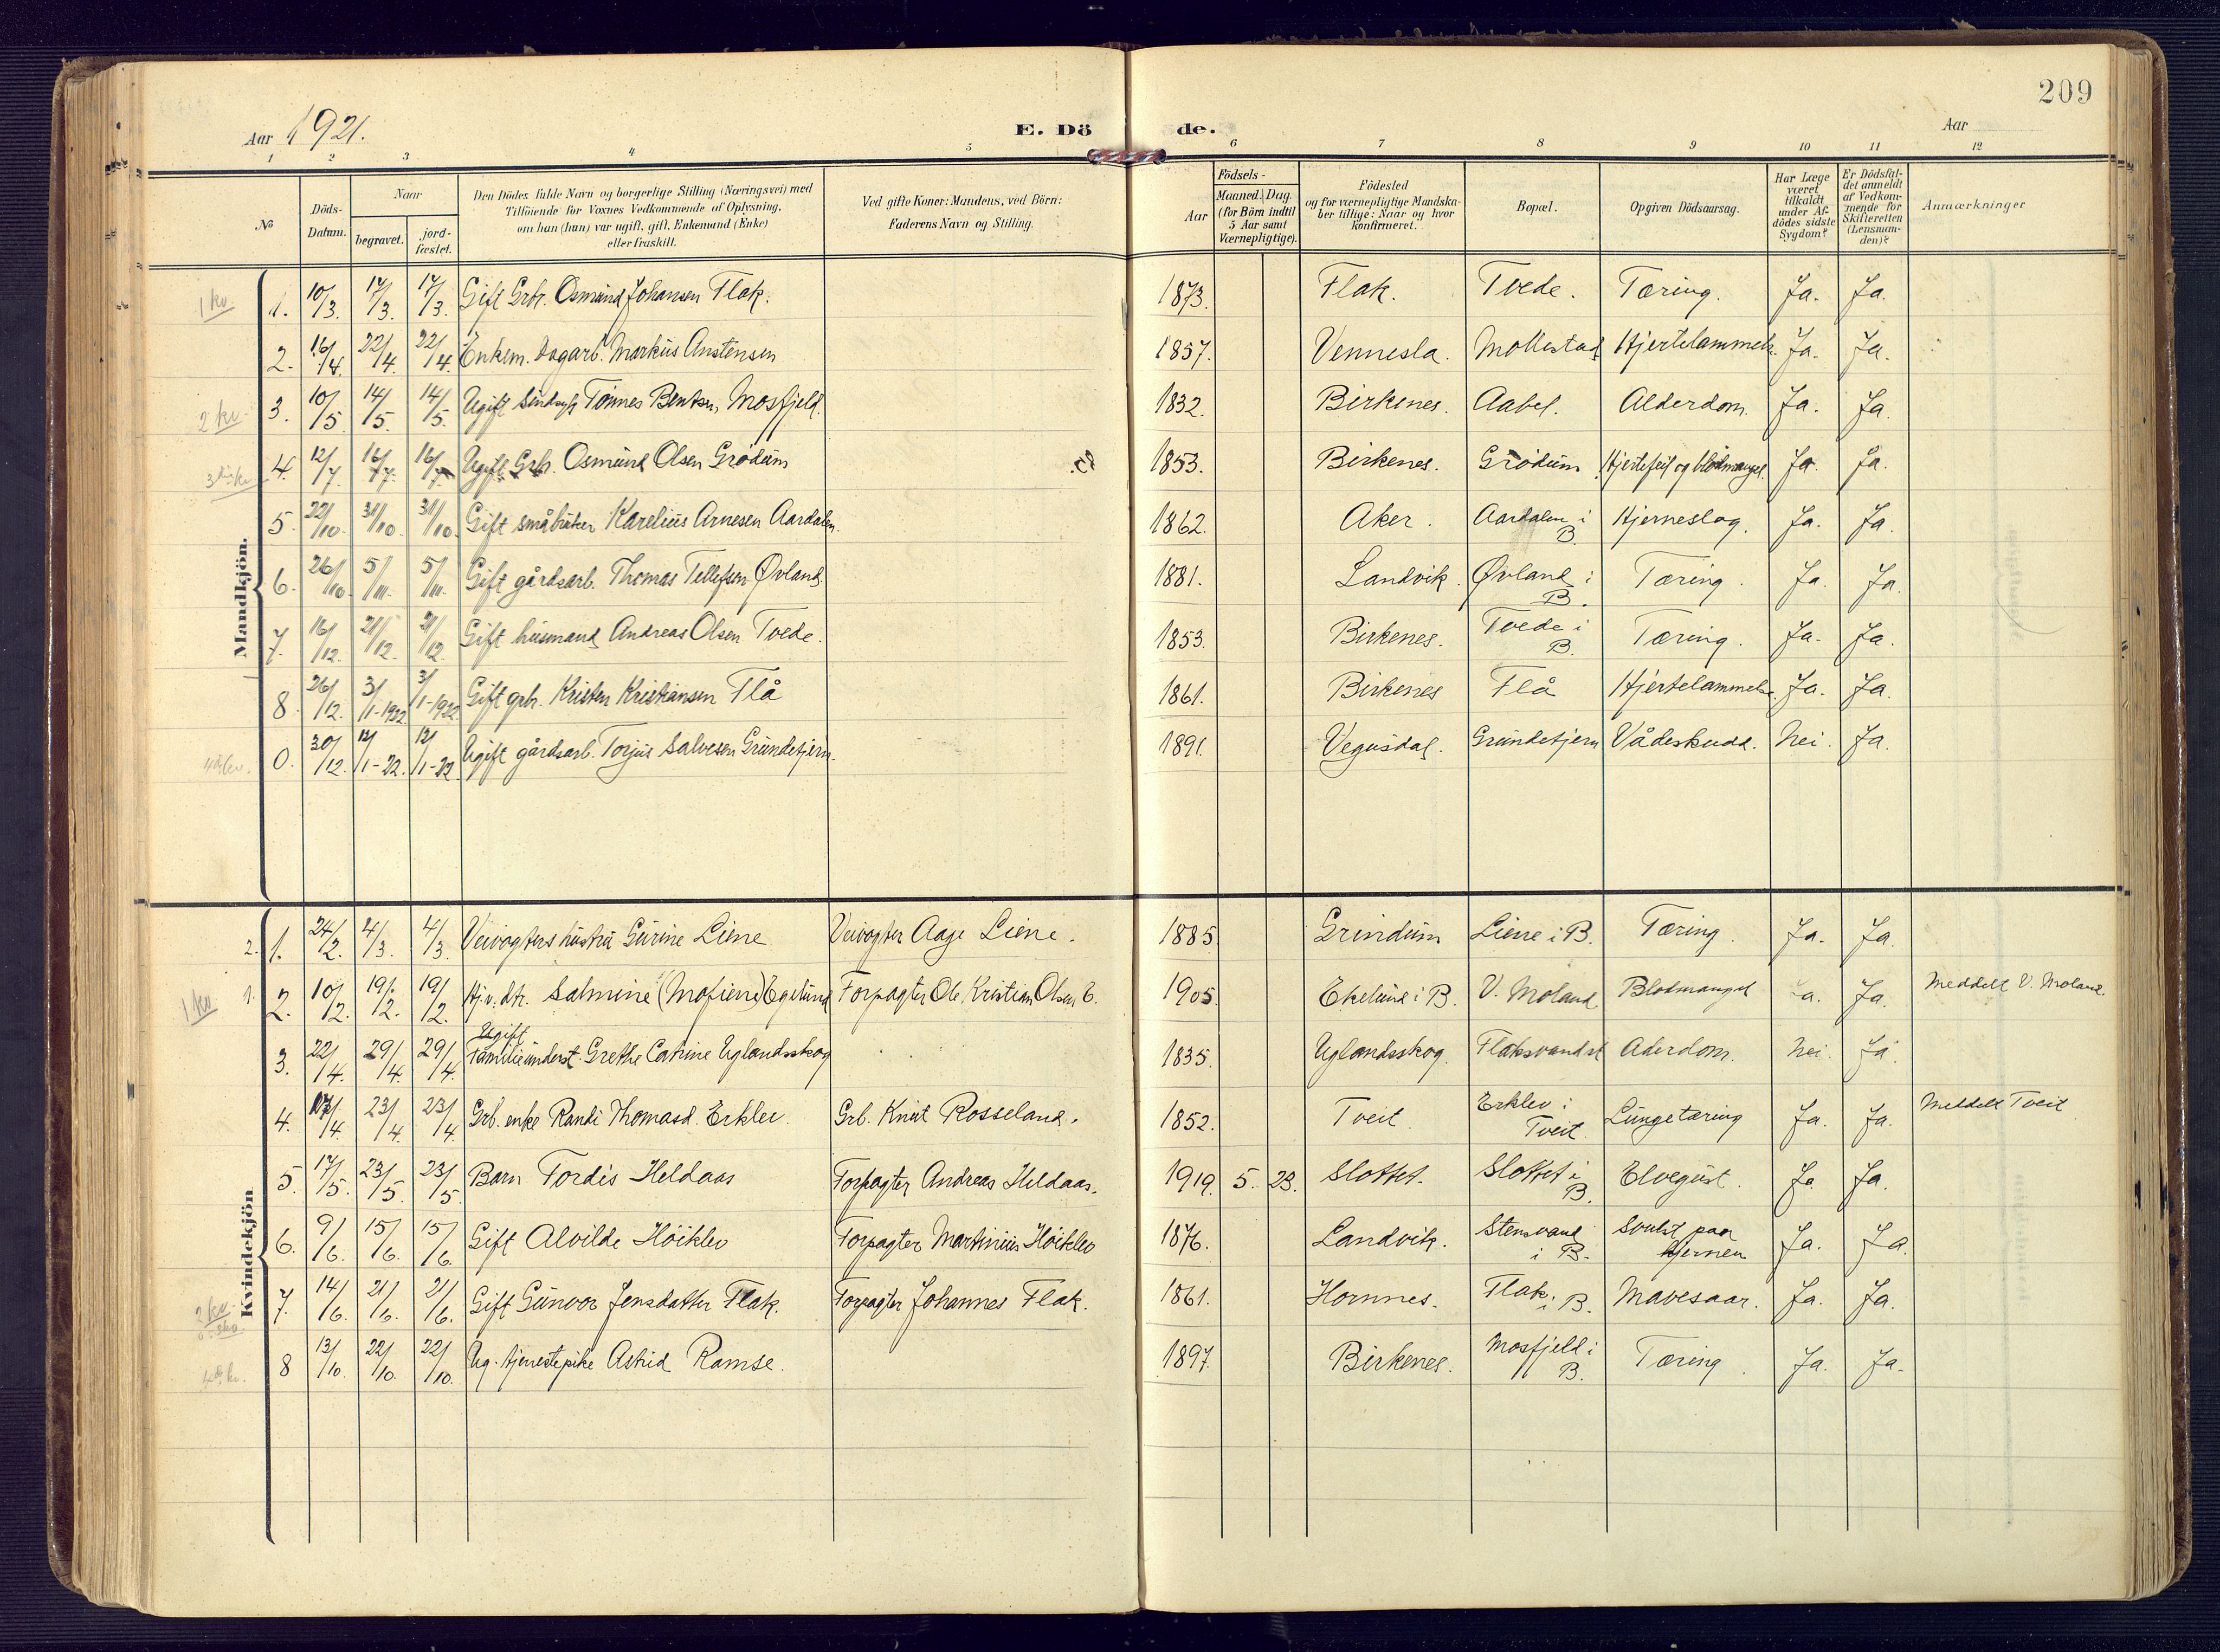 209
Aar 1921. E. Dö de. Aar
1 2 3 4 5 6 7 8 9 10 11 12
No
Döds-
Datum.
Naar
begravet.
jord-
fæstet.
Den Dödes fulde Navn og borgerlige Stilling (Næringsvei) med
Tilföiende for Voxnes Vedkommende af Oplysning,
om han (hun) var ugift, gift, Enkemand (Enke)
eller fraskilt.
Ved gifte Koner: Mandens, ved Börn:
Faderens Navn og Stilling.
Födsels-
Aar
Maaned. Dag.
(for Börn indtil
5 Aar samt
Værnepligtige).
Födested
og for værnepligtige Mandska-
ber tillige: Naar og hvor
konfirmeret.
Bopæl.
Opgiven Dödsaarsag.
Har Læge
været
tilkaldt
under Af-
dödes sidste
Sygdom?
Er Dödsfal-
det anmeldt
af Vedkom-
mende for
Skifteretten
(Lensman-
den)?
Anmærkninger
Mandkjön.
1 kv 1. 10/3 17/3. 17/3. Gift Grbr. Osmund Johansen Flak. 1873. Flak. Tvede. Tæring. Ja. Ja.
2. 16/4. 22/4. 22/4. Enkem. Dagarb. Markus Anstensen 1857. Vennesla. Mollestad Hjertelammelse. Ja. Ja.
2 kv 3. 10/5 14/5. 14/5. Ugift Sindsyg Tönnes Bentsen Mosfjeld. 1832. Birkenes. Aabel. Alderdom. Ja. Ja.
4. 12/7. 16/7. 16/7. Ugift Grbr. Osmund Olsen Grödum 1853. Birkenes. Grödum Hjertefeil og blodmangel. Ja. Ja.
5. 22/10. 31/10. 31/10. Gift småbruker Karelius Arnesen Aardalen. 1862. Aker. Aardalen i B. Hjerneslag. Ja. Ja.
6. 26/10. 5/11. 5/11. Gift gårdsarb. Thomas Tellefsen Øvland. 1881. Landvik. Øvland i B. Tæring. Ja. Ja.
7. 16/12. 21/12. 21/12. Gift husmand Andreas Olsen Tvede. 1853. Birkenes. Tvede i B. Tæring. Ja. Ja.
8. 26/12. 3/1-1922. 3/1-1922. Gift grbr. Kristen Kristiansen Flå 1861. Birkenes Flå Hjertelammelse. Ja. Ja.
0. 30/12. 12/1-22. 12/1-22. Ugift gårdsarb. Torjus Salvesen Grundetjern. 1891. Vegusdal. Grundetjern Vådeskudd. Nei. Ja.
Kvindekjön
2. 1. 24/2. 4/3. 4/3. Veivogters hustru Gurine Liene Veivogter Aage Liene. 1885. Grindum Liene i B. Tæring. Ja. Ja.
1 kv 1. 2. 10/2. 19/2. 19/2. Hj.v. dtr. Salmine (Mofiene) Egelund Forpagter Ole Kristian Olsen E. 1905. Ekelund i B. V. Moland. Blodmangel Ja. Ja. Meddelt V. Moland.
3. 22/4. 29/4. 29/4. Ugift Familieunderst. Grethe Catrine Uglandsskog 1835. Uglandsskog. Aderdom. Nei. Ja.
4. 17/4. 23/4. 23/4. Grb. enke Randi Thomasd. Erklev. Grb. Knut Rosseland. 1852. Tveit. Erklev i Tveit. Lungetæring Ja. Ja. Meddelt Tveit
5. 17/5. 23/5. 23/5. Barn Tordis Heldaas Forpagter Andreas Heldaas. 1919. 5. 23. Slottet. Slottet i B. Elvegust. Ja. Ja.
6. 9/6. 15/6. 15/6. Gift Alvilde Höiklev Forpagter Martinius Höiklev 1876. Landvik. Stensvand i B. Svulst paa hjernen Ja. Ja.
2 kv 7. 14/6. 21/6. 21/6. Gift Gunvor Jensdatter Flak. Forpagter Johannes Flak. 1861. Hornnes. Flak. i B. Mavesaar. Ja. Ja.
8 13/10. 22/10. 22/10. Ug. tjenestepike Astrid Ramse. 1897. Birkenes. Mosfjeld i B. Tæring. Ja. Ja.